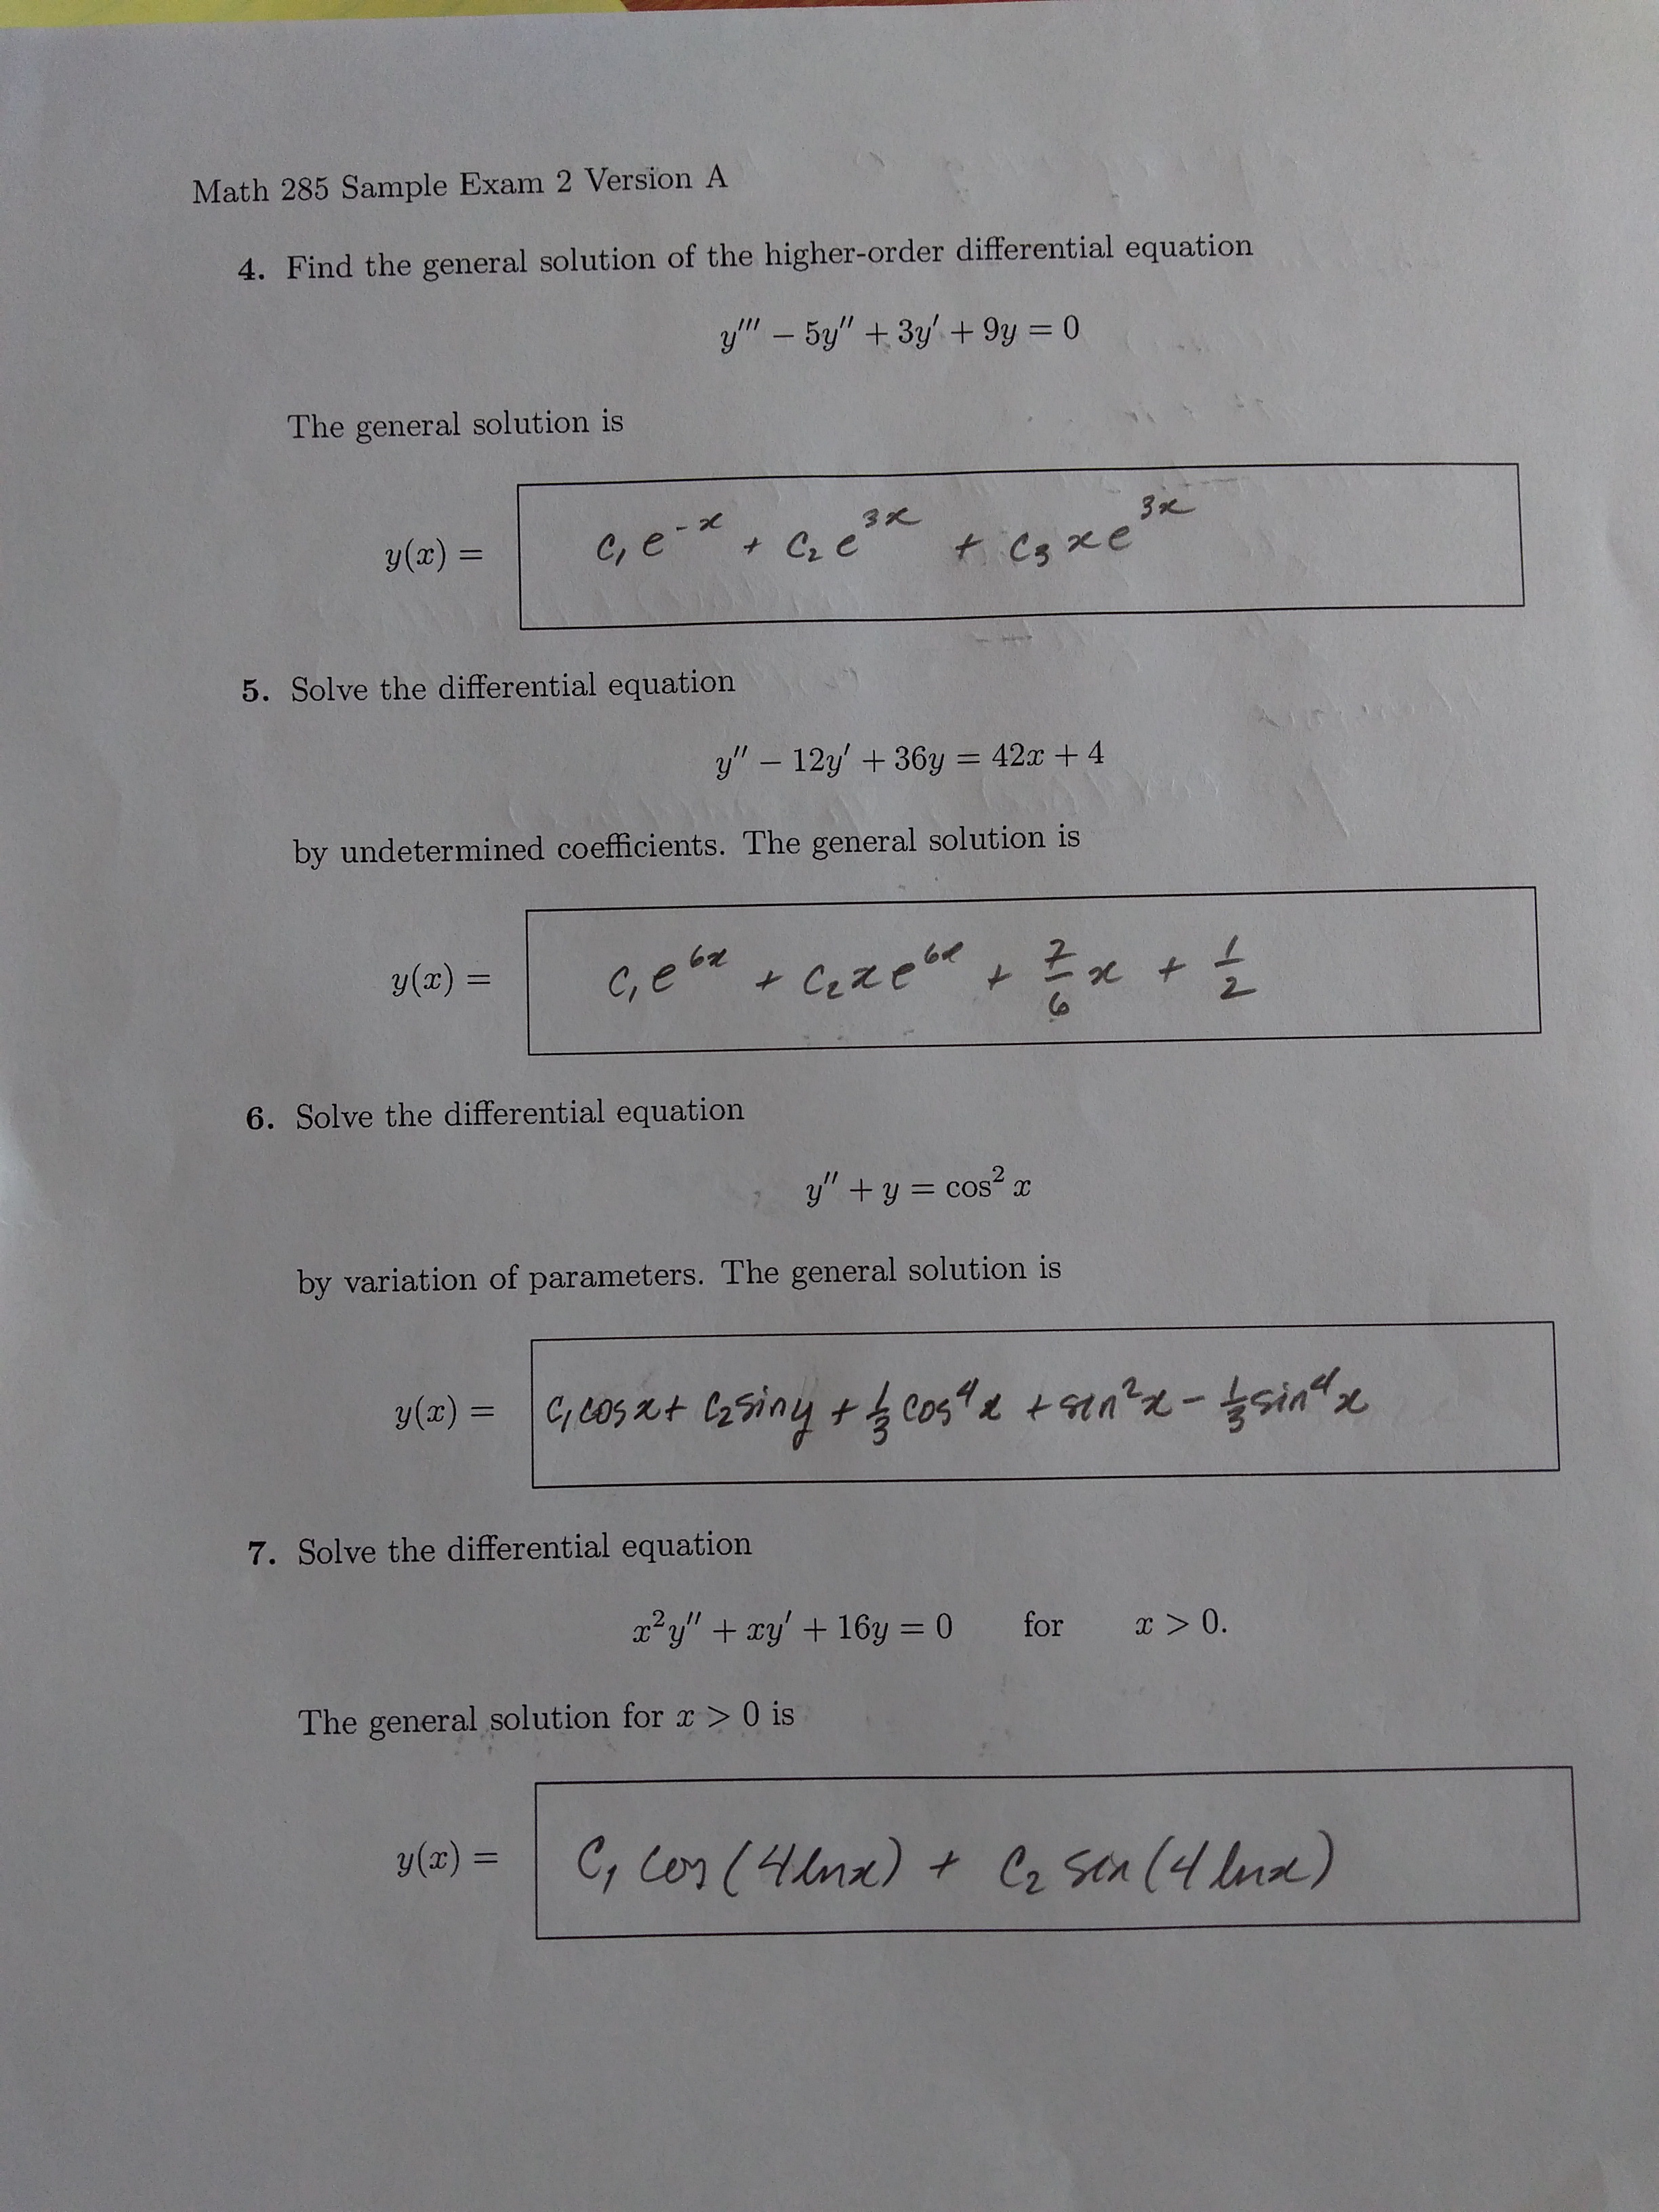 Math 285 Sample Exam 2 Version A
4. Find the general solution of the higher-order differential equation
y''' − 5y'' + 3y' + 9y = 0
The general solution is
y(x) = c₁e^{-x} + c₂e^{3x} + c₃xe^{3x}
5. Solve the differential equation
y'' − 12y' + 36y = 42x + 4
by undetermined coefficients. The general solution is
y(x) = c₁e^{6x} + c₂xe^{6x} + 7/6 x + 1/2
6. Solve the differential equation
y'' + y = cos² x
by variation of parameters. The general solution is
y(x) = c₁cosx + c₂siny + 1/3 cos⁴x + sin²x − 1/3 sin⁴x
7. Solve the differential equation
x²y'' + xy' + 16y = 0 for x > 0.
The general solution for x > 0 is
y(x) = C₁ cos(4lnx) + C₂ sin(4lnx)